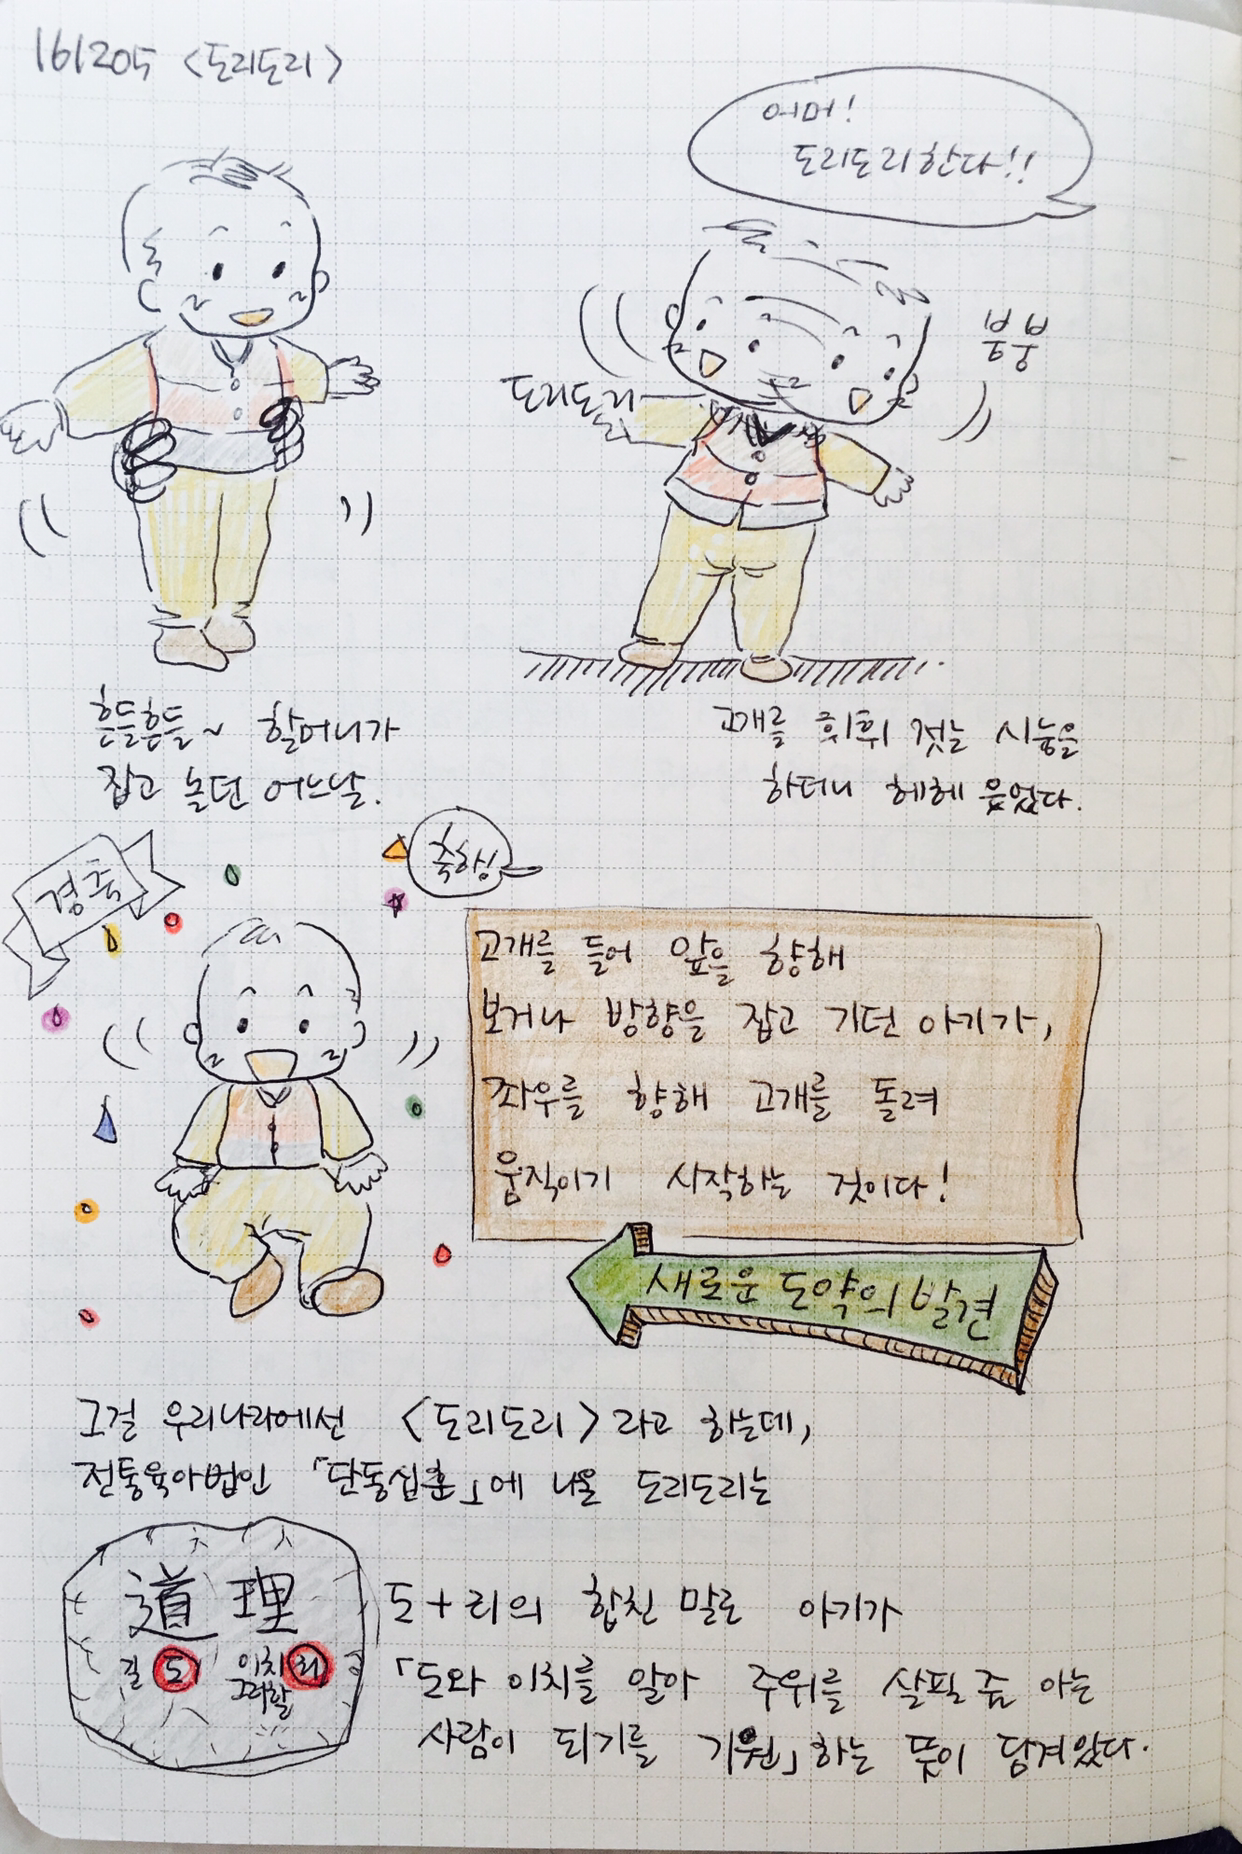 161205 <도리도리>
어머!
도리도리한다!!
도리도리
붕붕
흔들흔들~ 할머니가
잡고 놀던 어느날.
고개를 휘휘 젓는 시늉을
하더니 헤헤 웃었다.
경축
축하!
고개를 들어 앞을 향해
보거나 방향을 잡고 기던 아기가,
좌우를 향해 고개를 돌려
움직이기 시작하는 것이다!
새로운 도약의 발견
그걸 우리나라에선 <도리도리>라고 하는데,
전통육아법인 「단동십훈」에 나온 도리도리는
道 理
길 도 이치 리
그러할
도+리의 합친 말로 아기가
「도와 이치를 알아 주위를 살필 줄 아는
사람이 되기를 기원」하는 뜻이 담겨있다.